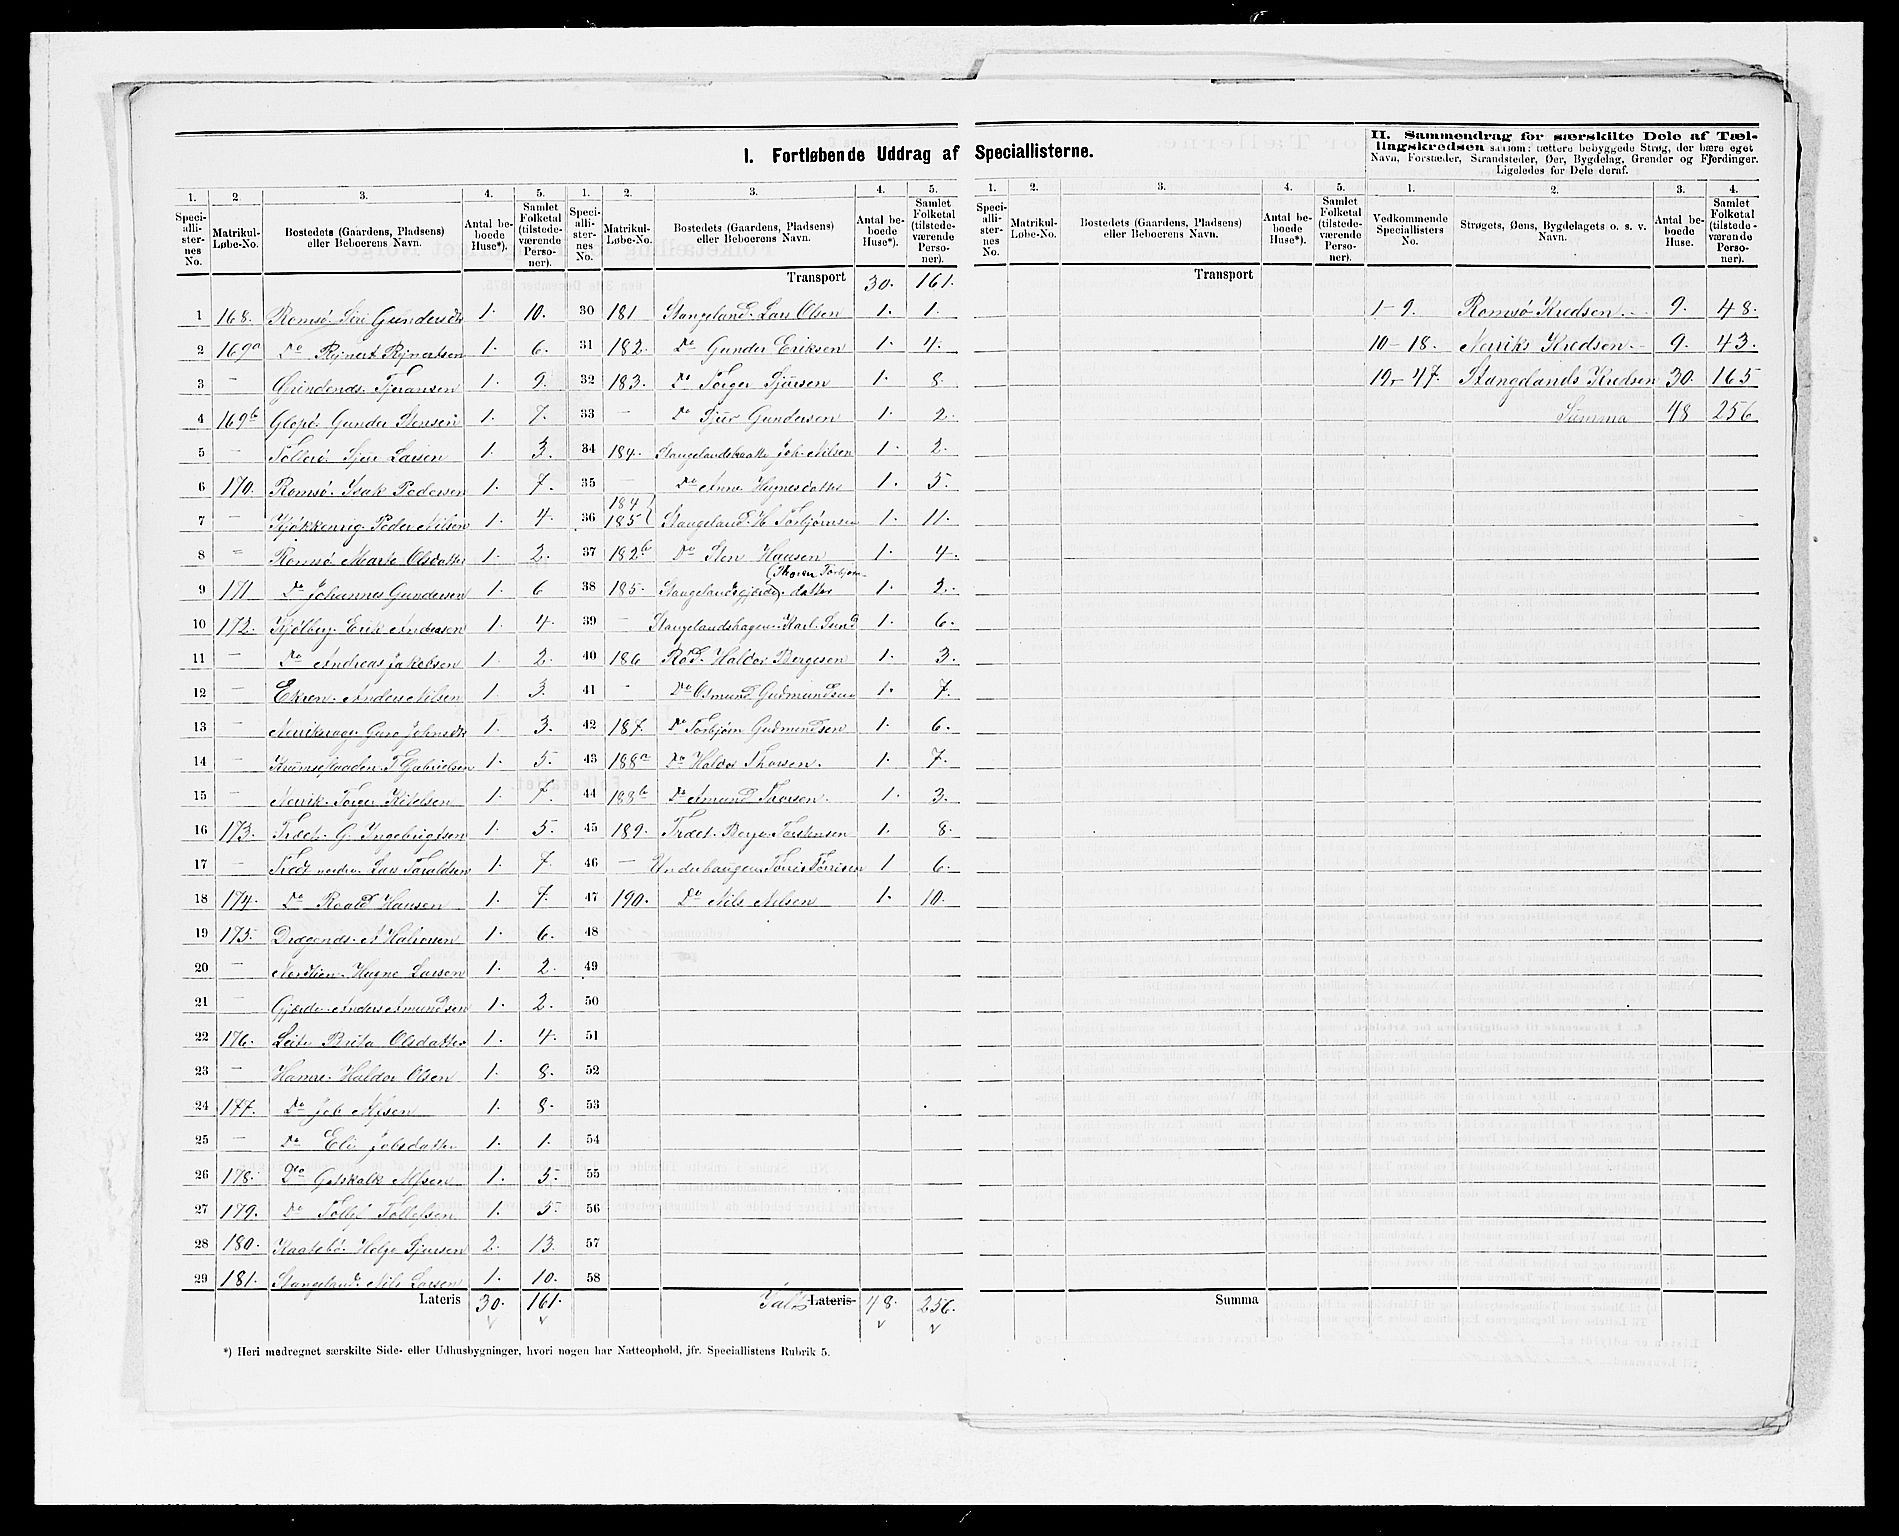 I. Fortløbende Uddrag af Speciallisterne.
II. Sammendrag for særskilte Dele af Tællingskredsen saasom: tættere bebyggede Strøg, der bære eget
Navn, Forstæder, Strandsteder, Øer, Bygdelag, Grender og Fjerdinger.
Ligeledes for Dele deraf.
1. 2. 3. 4. 5. 1. 2. 3. 4. 5.
Speciallisternes No. Matrikul-Løbe-No. Bostedets (Gaardens, Pladsens) eller Beboerens Navn. Antal beboede Huse*). Samlet Folketal (tilstedeværende Personer).
Speciallisternes No. Matrikul-Løbe-No. Bostedets (Gaardens, Pladsens) eller Beboerens Navn. Antal beboede Huse*). Samlet Folketal (tilstedeværende Personer).
1 168. Romsø. Siri Gundersdtr 1. 10.
2 169a Do Rejnert Rejnertsen 1. 6.
3 — 1. 9.
4 169b Glopø. Gunder Stensen 1. 7.
5 — Tollerø. Tjer Larsen 1. 3.
6 170. Romsø. Isak Pedersen 1. 7.
7 — Kjøkkenvig. Peder Nilsen 1. 4.
8 — Romsø Marte Olsdatter 1. 2.
9 171 Do Johannes Gundersen 1. 6
10 172. Kjølberg. Erik Andreasen 1. 4.
11 — Do Andreas Jakobsen 1. 2.
12 — Ekren. Anders Nilsen 1. 3.
13 — Guro Johnsdtr 1. 3.
14 — T Gabrielsen 1. 5.
15 — Nerrik. Torger Kitelsen 1. 7.
16 173. Træet. G. Ingebrigtsen 1. 5.
17 — Træet nordre. Lars Taraldsen 1. 7.
18 174. Do Roald Hansen 1. 7.
19 175. A Halvorsen 1. 6.
20 — Nordlien. Hagne Larsen 1. 2.
21 — Gjerde. Anders Amundsen 1. 2.
22 176. Leite Brita Olsdatter 1. 4.
23 — Hamre. Haldor Olsen 1. 8.
24 177. Do Job Alfsen 1. 8.
25 — Do Eli Jobsdatter 1. 1.
26 178. Do Gotskalk Alfsen 1. 5.
27 179. Do Tollef Tollefsen 1. 5.
28 180. Kaatebø. Helge Tjersen 2. 13.
29 181. Stangeland. Nils Larsen 1. 10.
Lateris 30. 161.
Transport 30. 161.
30 181 Stangeland. Lars Olsen 1. 1.
31 182. Do Gunder Eriksen 1. 4.
32 183. Do Torger Tjersen 1. 8.
33 — Do Tjer Gundersen 1. 2.
34 184. Joh. Nilsen 1. 2.
35 — Do Anne Hagnesdatter 1. 5.
36 184 185 Stangeland. H Torbjørnsen 1. 11.
37 182b Do Sten Hansen 1. 4.
38 185. Stangelandsgjerde. (Thoren Torbjørnsdatter 1. 2.
39 — Stangelandshagen. Karl Sund 1. 6.
40 186 Rød. Haldor Bergesen 1. 3.
41 - Do Osmund Gudmundsen 1. 7.
42 187. Do Torbjørn Gudmundsen 1. 6.
43 188a Do Haldor Thorsen. 1. 7.
44 188b Do Amund Thorsen. 1. 3.
45 189. Træet. Berge Torstensen 1. 8.
46 — Underhaugen. Tørris Tørrisen 1 6.
47 190. Do Nils Nilsen 1. 10.
48
49
50
51
52
53
54
55
56
57
58
Ialt Lateris 48. 256.
*) Heri medregnet særskilte Side- eller Udhusbygninger, hvori nogen har Natteophold, jfr. Speciallistens Rubrik 5.
1. 2. 3. 4. 5. 1. 2. 3. 4.
Speciallisternes No. Matrikul-Løbe-No. Bostedets (Gaardens, Pladsens) eller Beboerens Navn. Antal beboede Huse*). Samlet Folketal (tilstedeværende Personer).
Vedkommende Speciallisters No. Strøgets, Øens, Bygdelagets o. s. v. Navn. Antal beboede Huse. Samlet Folketal (tilstedeværende Personer).
Transport
1-9. Romsø Kredsen 9. 48.
10-18. Nerriks Kredsen 9. 43.
19-47. Stangelands Kredsen 30. 165
Summa 48 256
Summa